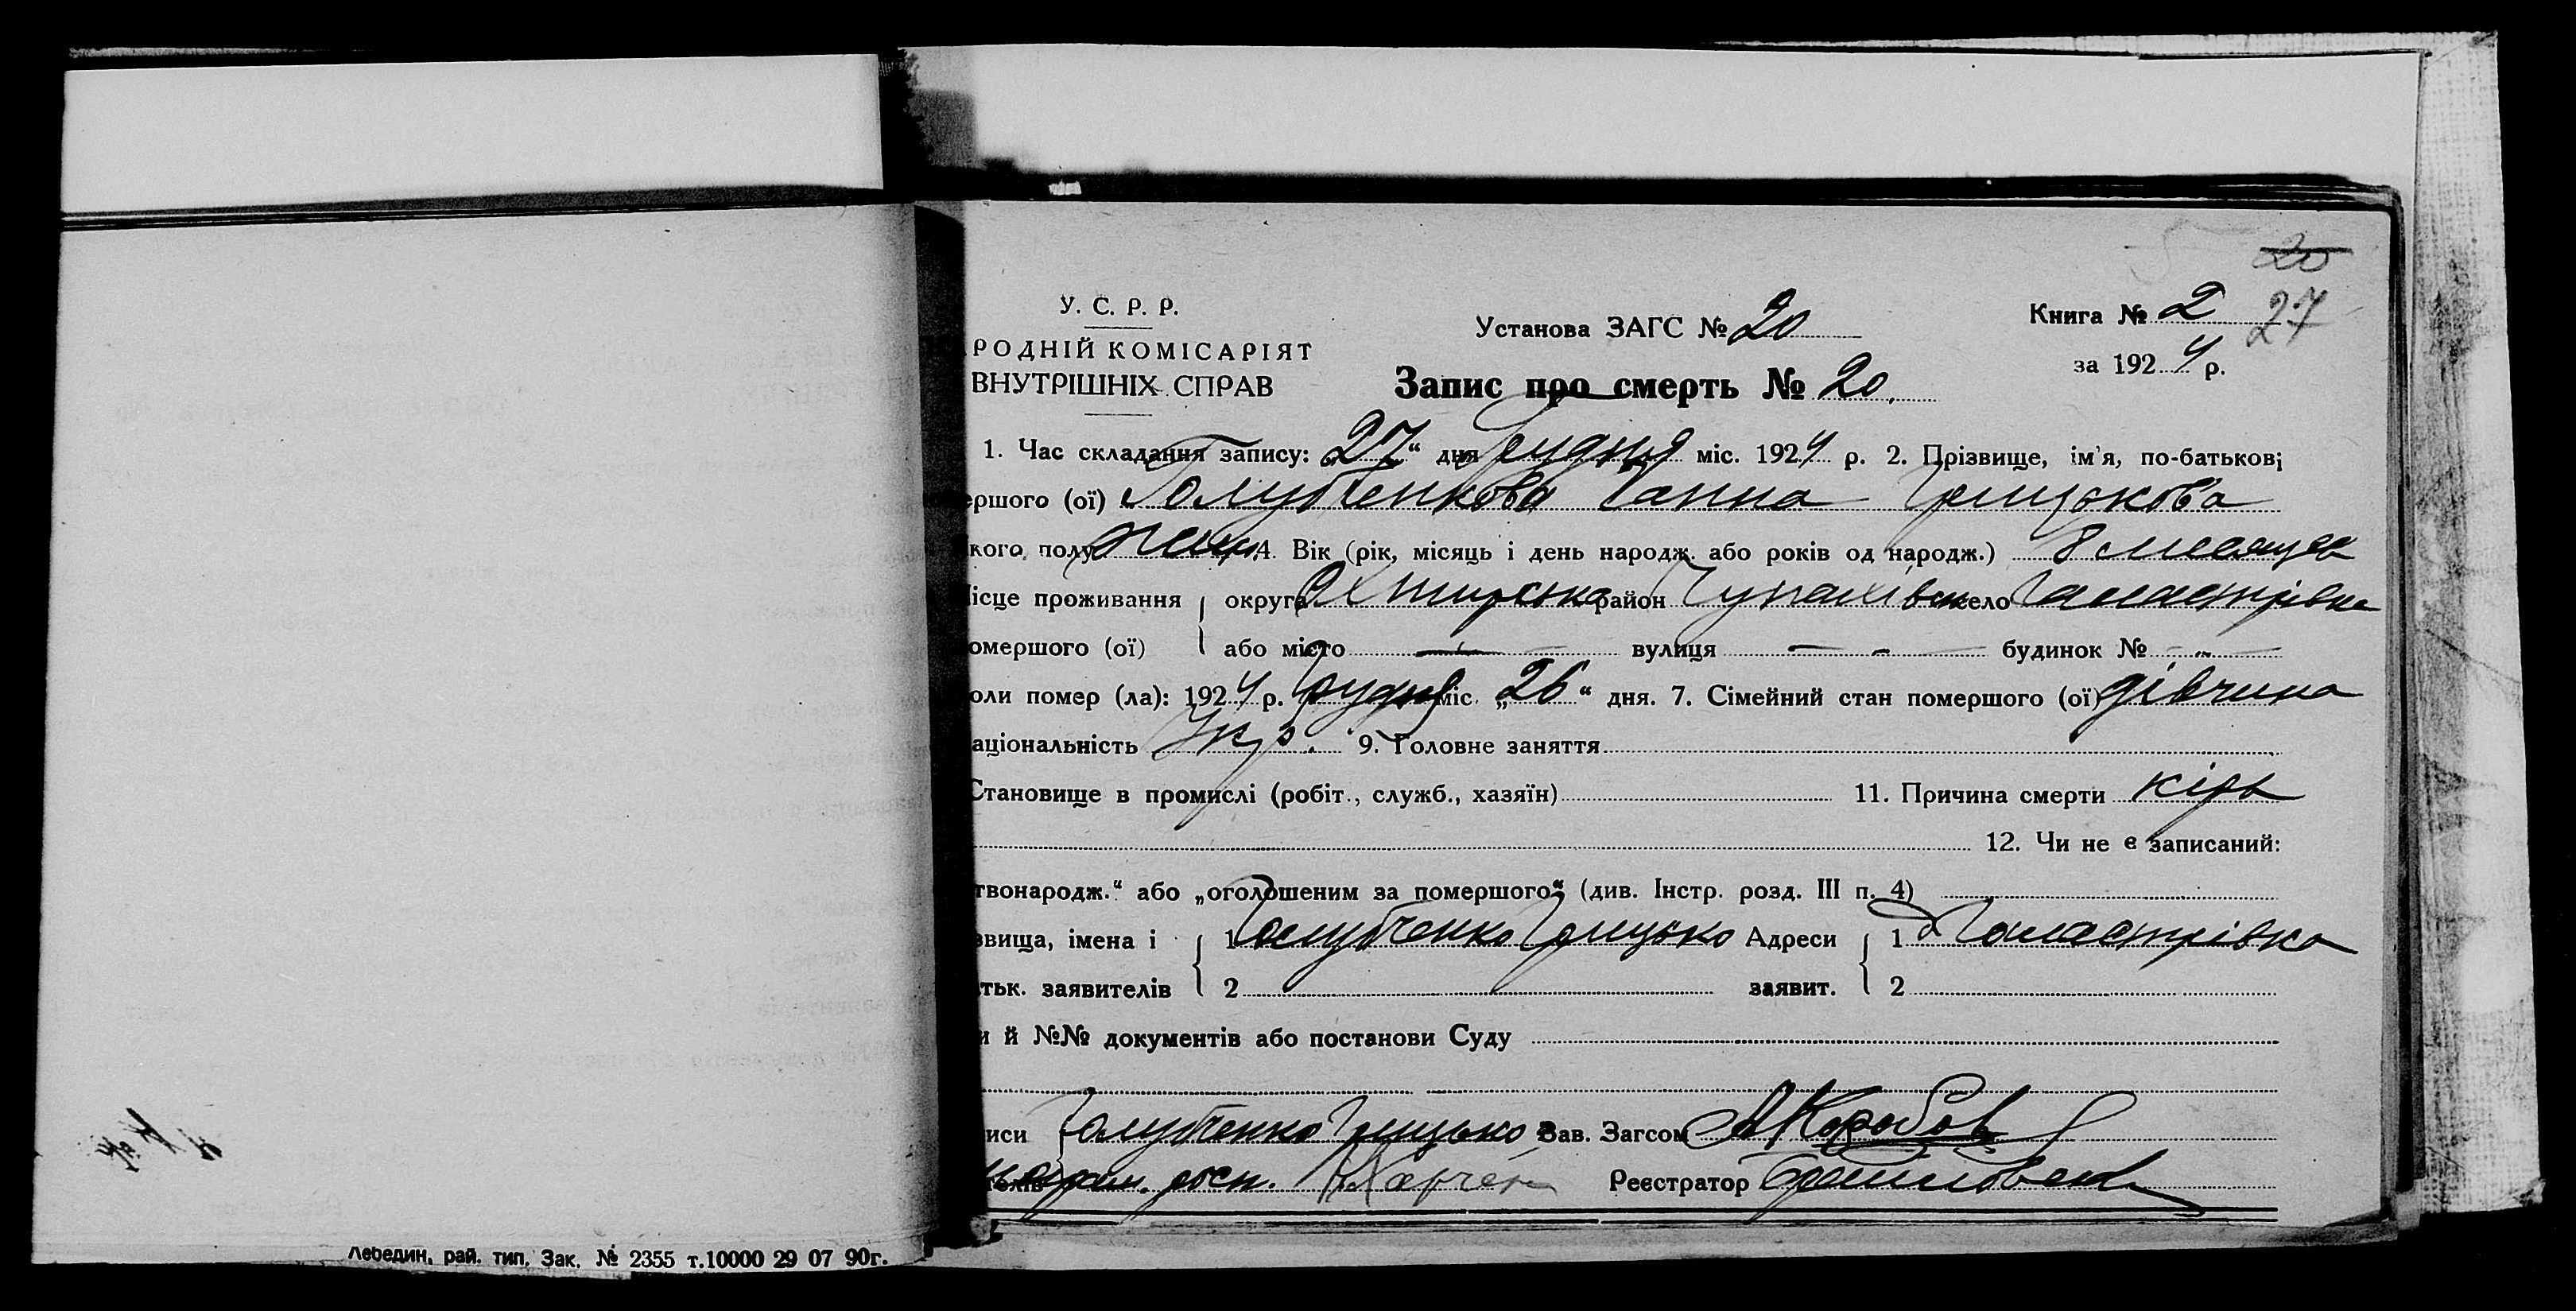 20
У. С. Р. Р.
Установа ЗАГС № 20
Книга № 2 27
РОДНІЙ КОМІСАРІЯТ
за 1924 р.
ВНУТРІШНІХ СПРАВ
Запис про смерть № 20.
1. Час складання запису: „27“ дня грудня міс. 1924 р. 2. Прізвище, ім'я, по-батькові
ершого (ої) Голубченкова Ганна Грицькова
кого полу жін. 4. Вік (рік, місяць і день народж. або років од народж.) 8 месяцев
ісце проживання округа Охтирська район село
омершого (ої) або місто — вулиця — „ — будинок № — „ —
оли помер (ла): 1924 р. грудня міс. „26“ дня. 7. Сімейний стан помершого (ої) дівчина
аціональність Укр. 9. Головне заняття
Становище в промислі (робіт., служб., хазяїн) 11. Причина смерти кірь
12. Чи не є записаний:
твонародж.“ або „оголошеним за помершого“ (див. Інстр. розд. III п. 4)
звища, імена і 1 Голубченко Грицько Адреси 1
тьк. заявителів 2 заявит. 2
и й №№ документів або постанови Суду
иси Голубченко Грицько Зав. Загсом
телів Реєстратор
Лебедин, рай. тип. Зак. № 2355 т.10000 29 07 90г.